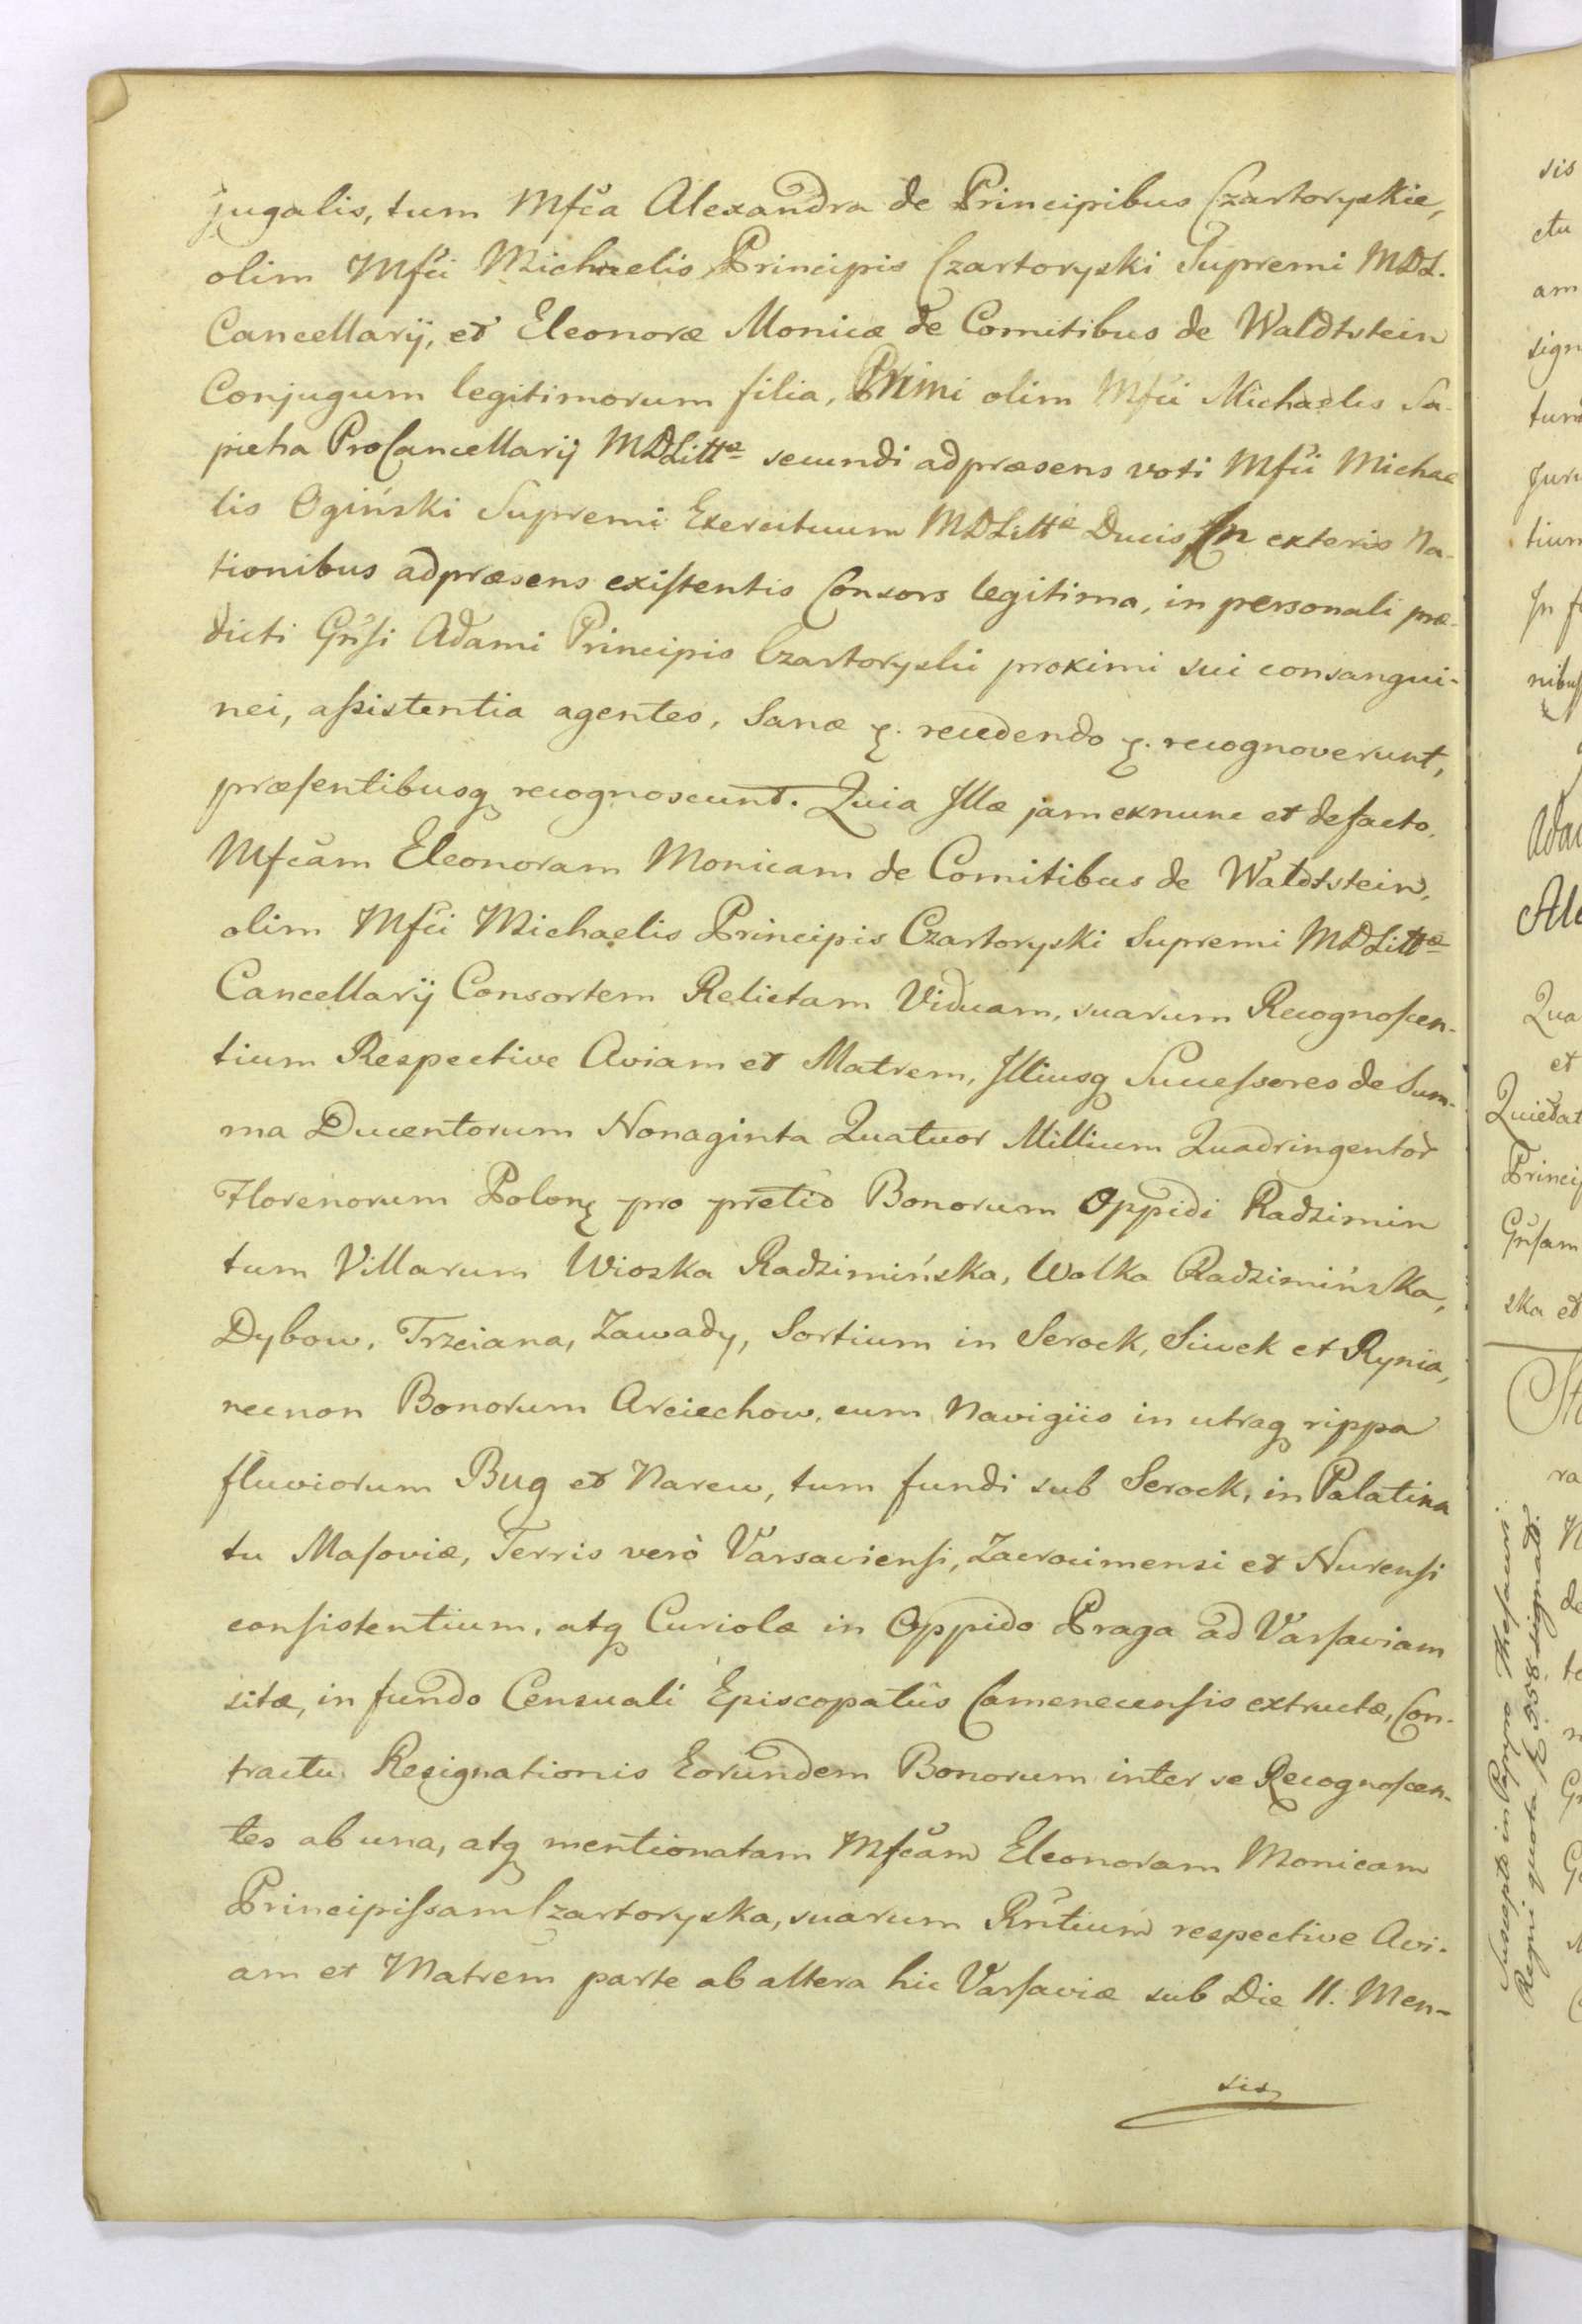 jugalis, tum Mfca Alexandra de Principibus Czartoryskie,
olim Mfci Michaelis Principis Czartoryski Supremi MDL.
Cancellarij, et Eleonoræ Monicæ de Comitibus de Waldtstein
Conjugum legitimorum filia, Primi olim Mfci Michaelis Sa-
pieha ProCancellarij MDLittæ secundi adpræsens voti Mfci Michae
lis Ogiński Supremi Exercituum MDLittæ Ducis In exteris Na-
tionibus adpræsens existentis Consors legitima, in personali præ-
dicti Gnsi Adami Principis Czartoryski proximi sui consangui-
nei, assistentia agentes, Sanæ ę. recedendo ę. recognoverunt,
præsentibusq recognoscunt. Quia Illæ jam exnunc et defacto,
Mfcam Eleonoram Monicam de Comitibus de Waldtstein,
olim Mfci Michaelis Principis Czartoryski Supremi MDLittæ
Cancellarij Consortem Relictam Viduam, suarum Recognoscen-
tium Respective Aviam et Matrem, Illiusq Successores de Sum-
ma Ducentorum Nonaginta Quatuor Millium Quadringentor
Florenorum Polonę pro pretio Bonorum Oppidi Radzimin
tum Villarum Wioska Radzimińska, Wolka Radzimińska,
Dybow, Trzciana, Zawady, Sortium in Serock, Siwek et Rynia,
necnon Bonorum Arciechow, cum Navigiis in utraq rippa
fluviorum Bug et Narew, tum fundi sub Serock, in Palatina
tu Masoviæ, Terris verò Varsaviensi, Zacrocimensi et Nurensi
consistentium, atq Curiolæ in Oppido Praga ad Varsaviam
sitæ, in fundo Censuali Episcopatûs Camenecensis extructæ, Con-
tractu Resignationis Eorundem Bonorum inter se Recognoscen-
tes ab una, atq mentionatam Mfcam Eleonoram Monicam
Principissam Czartoryska, suarum Rntium respective Avi-
am et Matrem parte ab altera hic Varsaviæ sub Die 11. Men-
sis
sis
ctu
am
sign
tium
nibus
Ada
Ale
Qua
et
Quietat
Princip
Gnsam
ska et
Suscepta in Papyro Thesauri
Regni quota
signato